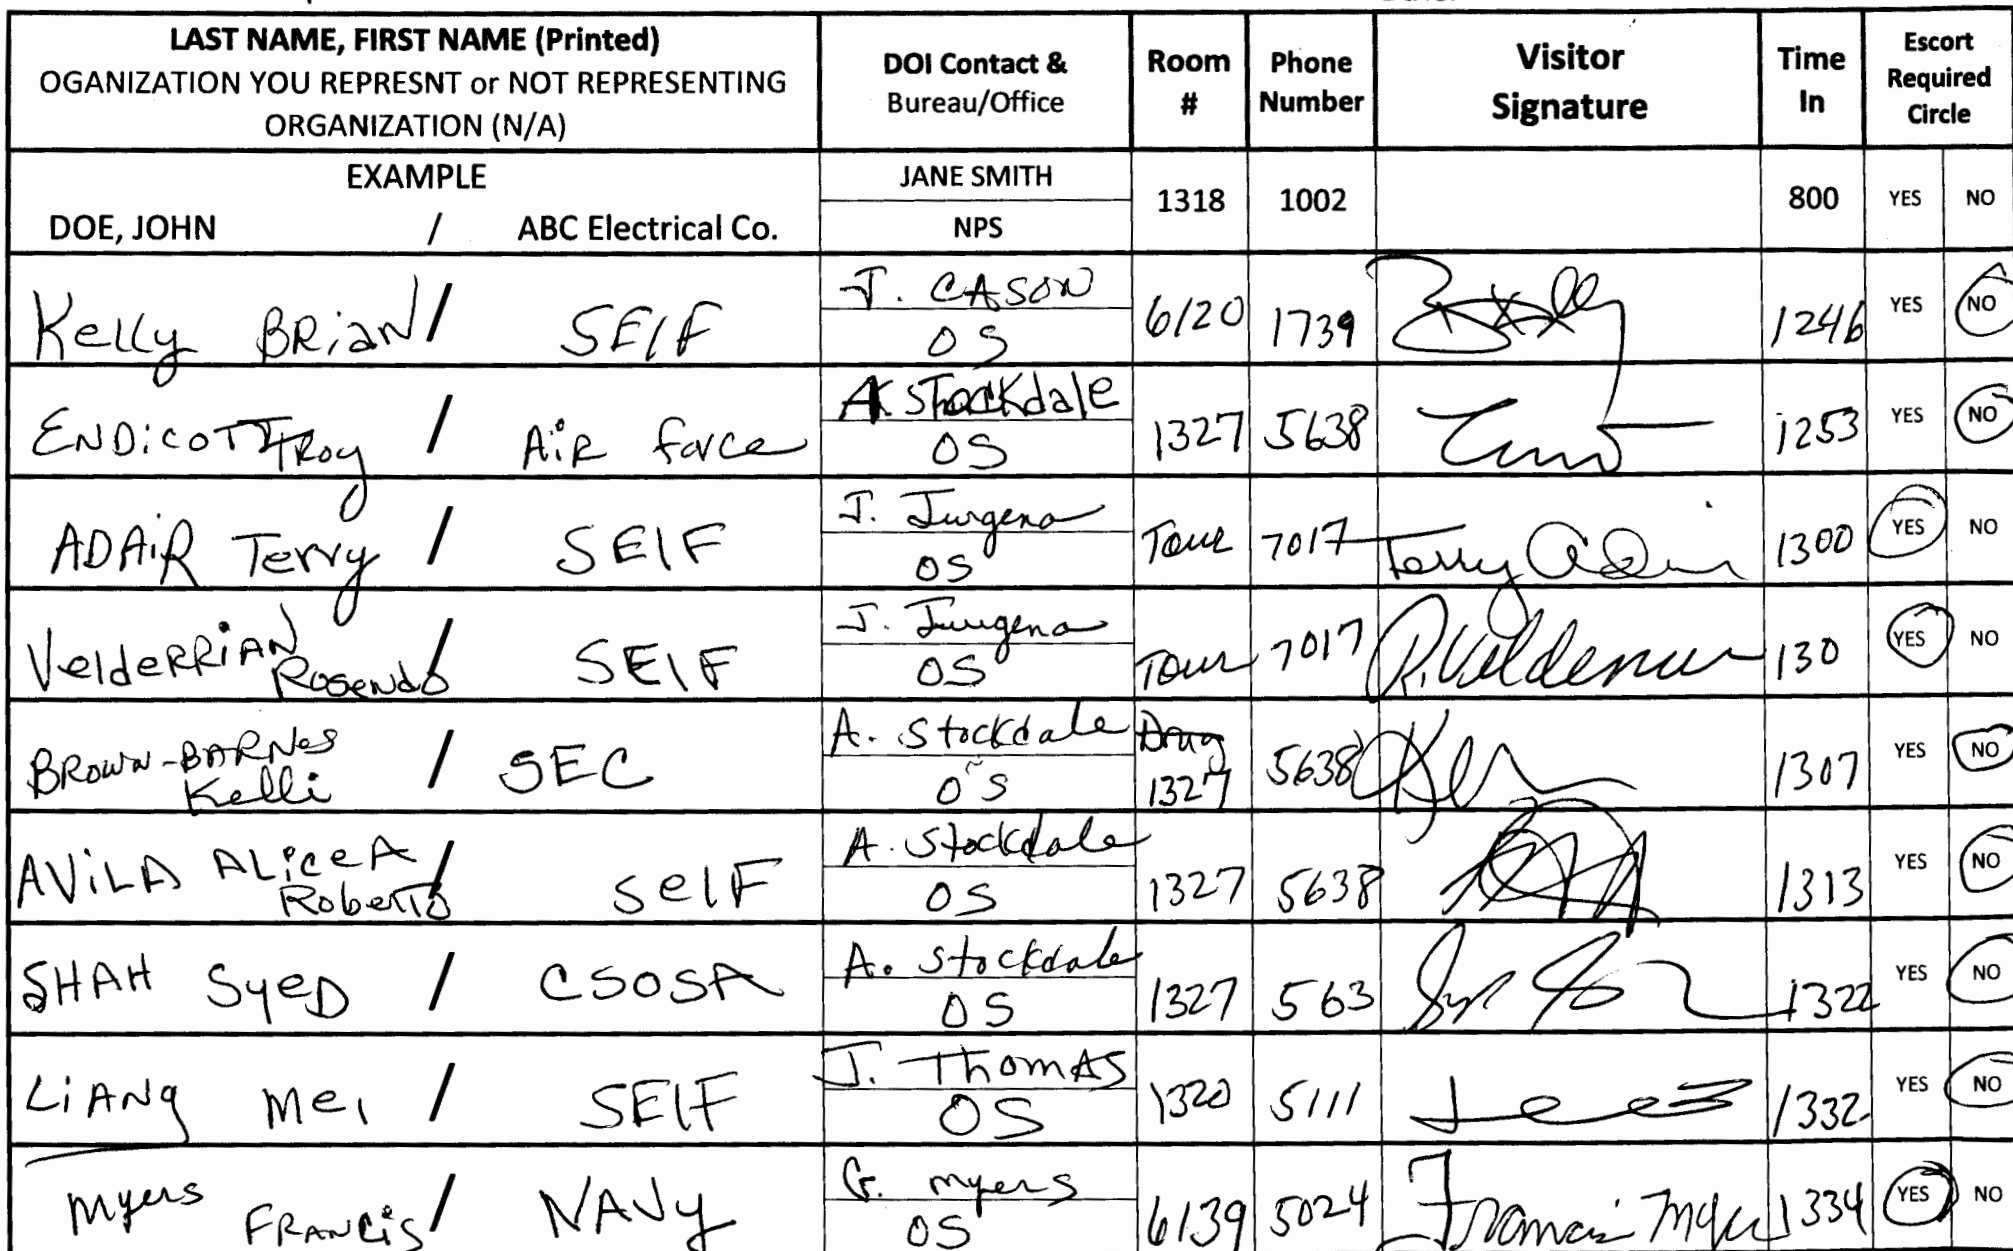 LAST NAME, FIRST NAME (Printed)
OGANIZATION YOU REPRESNT or NOT REPRESENTING
ORGANIZATION (N/A)
DOI Contact &
Bureau/Office
Room
#
Phone
Number
Visitor
Signature
Time
In
Escort
Required
Circle
EXAMPLE
DOE, JOHN / ABC Electrical Co.
JANE SMITH
NPS
1318
1002
800
YES
NO
Kelly BRian / SElF
J. CASON
OS
6120
1739
1246
YES
NO
ENDiCOTT TRoy / AiR force
A Stockdale
OS
1327
5638
1253
YES
NO
ADAiR Terry / SElF
J. Jurgena
OS
Tour
7017
Terry Adair
1300
YES
NO
VeldeRRiAN
Rosendo / SElF
J. Jurgena
OS
Tour
7017
130
YES
NO
BROWN-BARNes
Kelli / SEC
A. Stockdale
OS
Drug
1327
5638
1307
YES
NO
AViLA ALiceA
RobeRTO / SelF
A. Stockdale
OS
1327
5638
1313
YES
NO
SHAH SyeD / CSOSA
A. Stockdale
OS
1327
563
1322
YES
NO
LiANg Mei / SElF
J. THOMAS
OS
1320
5111
1332
YES
NO
Myers
FRANCis / NAVy
G. Myers
OS
6139
5024
Francis Myers
1334
YES
NO